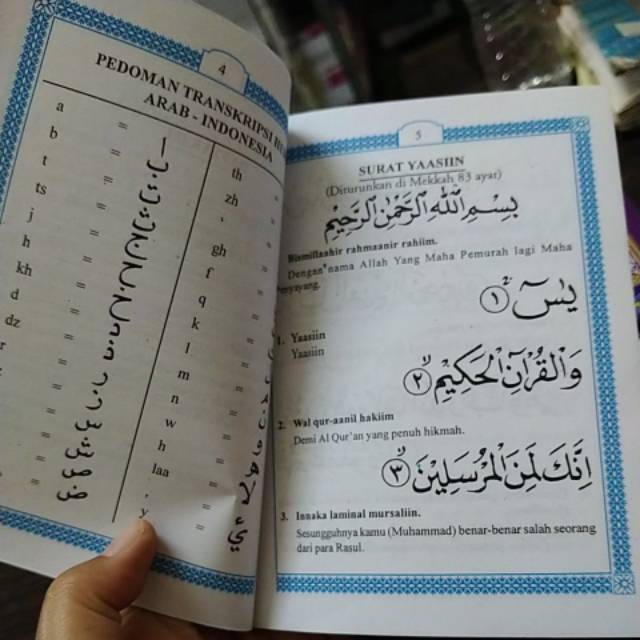 4
PEDOMAN TRANSKRIPSI
ARAB - INDONESIA
a =
b =
t =
ts =
j =
h =
kh =
d =
dz =
th =
zh =
gh =
f =
q =
k =
l =
m =
n =
w =
h =
laa =
y =
5
SURAT YAASIIN
(Diturunkan di Mekkah 83 ayat)
بِسْمِ اللّٰهِ الرَّحْمٰنِ الرَّحِيْمِ
Bismillaahir rahmaanir rahiim.
Dengan nama Allah Yang Maha Pemurah lagi Maha
يٰسٓ ۚ ١
1. Yaasiin
Yaasiin
وَالْقُرْاٰنِ الْحَكِيْمِ ۙ ٢
2. Wal qur-aanil hakiim
Demi Al Qur'an yang penuh hikmah.
اِنَّكَ لَمِنَ الْمُرْسَلِيْنَ ۙ ٣
3. Innaka laminal mursaliin.
Sesungguhnya kamu (Muhammad) benar-benar salah seorang
dari para Rasul.